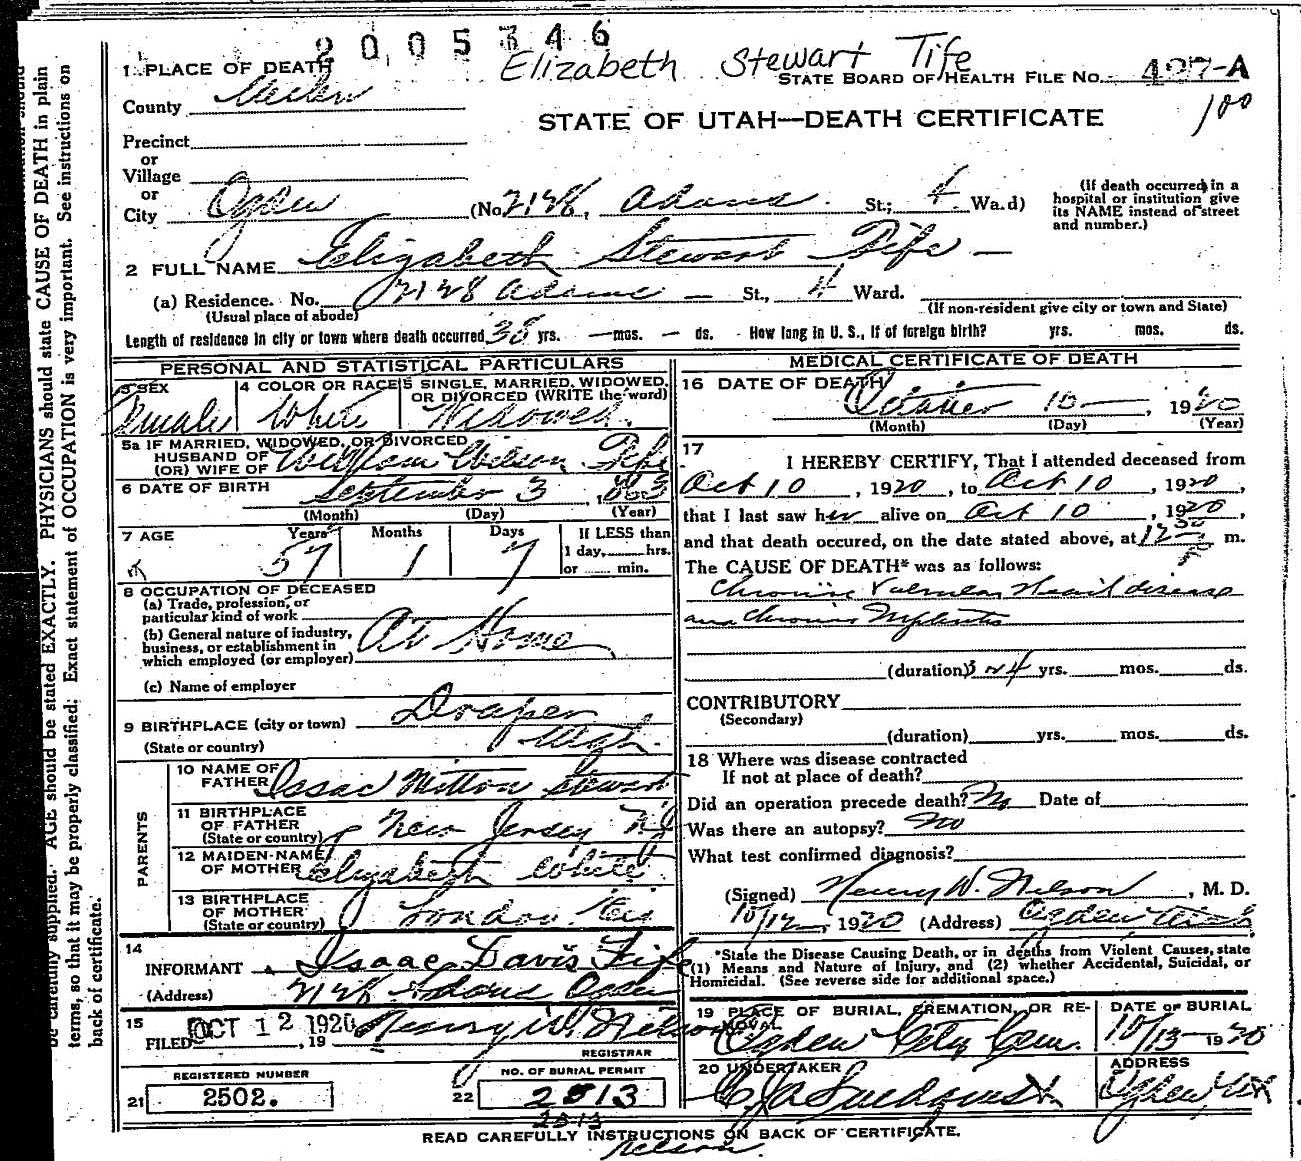 2005746
Elizabeth Stewart Fife
STATE BOARD OF HEALTH FILE No. 427-A
100
STATE OF UTAH—DEATH CERTIFICATE
1 PLACE OF DEATH
County Weber
Precinct
or
Village
or
City Ogden (No. 2128, Adams St.; 4 Ward)
(If death occurred in a hospital or institution give its NAME instead of street and number.)
2 FULL NAME Elizabeth Stewart Fife
(a) Residence. No. 2128 Adams — St., 4 Ward.
(Usual place of abode)
(If non-resident give city or town and State)
Length of residence in city or town where death occurred 38 yrs. — mos. — ds. How long in U. S., if of foreign birth? yrs. mos. ds.
PERSONAL AND STATISTICAL PARTICULARS
3 SEX Female
4 COLOR OR RACE White
5 SINGLE, MARRIED, WIDOWED, OR DIVORCED (WRITE the word) Widowed.
5a IF MARRIED, WIDOWED, OR DIVORCED
HUSBAND OF
(OR) WIFE OF William Wilson Fife
6 DATE OF BIRTH September 3, 1863
(Month) (Day) (Year)
7 AGE Years 57 Months 1 Days 7
If LESS than
1 day, hrs.
or min.
8 OCCUPATION OF DECEASED
(a) Trade, profession, or
particular kind of work
(b) General nature of industry,
business, or establishment in
which employed (or employer)
At Home
(c) Name of employer
9 BIRTHPLACE (city or town) Draper
(State or country) Utah.
PARENTS
10 NAME OF FATHER Isaac Mitton Stewart
11 BIRTHPLACE OF FATHER
(State or country) New Jersey NJ
12 MAIDEN-NAME OF MOTHER Elizabeth White
13 BIRTHPLACE OF MOTHER
(State or country) London
14
INFORMANT Isaac Davis Fife
(Address) 2128 Adams Ogden
15
FILED OCT 12 1920, 19 Henry W. Nelson
REGISTRAR
REGISTERED NUMBER
21 2502.
NO. OF BURIAL PERMIT
22 2513
2513
MEDICAL CERTIFICATE OF DEATH
16 DATE OF DEATH
October 10 —, 1920
(Month) (Day) (Year)
17
I HEREBY CERTIFY, That I attended deceased from
Oct 10, 1920, to Oct 10, 1920,
that I last saw her alive on Oct 10, 1920,
and that death occured, on the date stated above, at 12 30 P m.
The CAUSE OF DEATH* was as follows:
Chronic Valvular Heart disease
and Chronic Nephritis
(duration) 3 or 4 yrs. mos. ds.
CONTRIBUTORY
(Secondary)
(duration) yrs. mos. ds.
18 Where was disease contracted
If not at place of death?
Did an operation precede death? No Date of
Was there an autopsy? No
What test confirmed diagnosis?
(Signed) Henry W. Nelson, M. D.
10/12, 1920 (Address) Ogden Utah
*State the Disease Causing Death, or in deaths from Violent Causes, state
(1) Means and Nature of Injury, and (2) whether Accidental, Suicidal, or
Homicidal. (See reverse side for additional space.)
19 PLACE OF BURIAL, CREMATION, OR REMOVAL
Ogden City Cem.
DATE OF BURIAL
10/13 1920
20 UNDERTAKER
ADDRESS
Ogden Utah
READ CAREFULLY INSTRUCTIONS ON BACK OF CERTIFICATE.
Nelson.
be carefully supplied. AGE should be stated EXACTLY. PHYSICIANS should state CAUSE OF DEATH in plain
terms, so that it may be properly classified. Exact statement of OCCUPATION is very important. See instructions on
back of certificate.